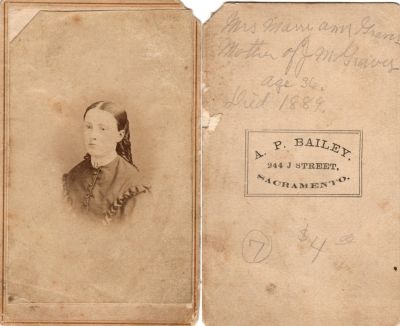 Mrs Mary ann Graves
Mother of J M Graves
age 36.
Died 1889.
A. P. BAILEY.
244 J STREET,
SACRAMENTO.
7
$4